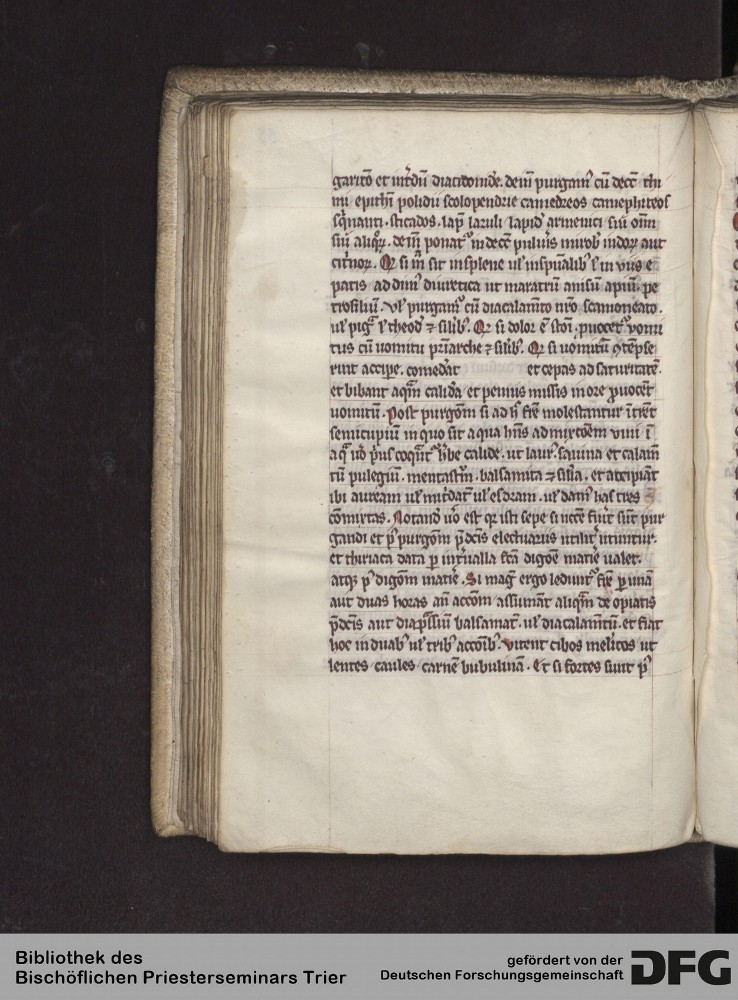 garitō et int̄dū diacitoniten. dein purgant̄ cū decc̄ thi
mi epithi polidii scolopendrie camedreos camephiteos
sq̄nanti. sticados. lap̄ lazuli lapid̄ armenici siui om̄
siui aliq̄ꝝ. dein ponat᷑ in decc̄ puluis mirob̄ indoꝝ aut
citrinoꝝ. Qr̄ si m̄ sit in splene ul̓ in spūalib᷒ ł in uiis e
patis addim᷒ diuretica ut maratrū anisū apiū. pe
trosiliū. Vl̓ purgant̄ cū diacalamīto nr̄o scamoneato.
ul̓ piḡ ł theod̄ ⁊ silib᷒. Qr̄ si dolor ē stōi. puocet᷑ vomi
tus cū uomitu pr̄iarche ⁊ silib᷒. Qr̄ si uomitū ꝯtēpse
rint accipe. comedāt et cepas ad saturitatē.
et bibant aquā calidā et pennis missis in ore puocēt
uomitū. Post purgōm si ad h᷒ frē molestantur ītrēt
semicupiū in quo sīt aqua hn̄s admixtōem uini ī
aq̄ uō p̄us coquāt᷑ h̓be calide. ut laur᷒. sauina et calam̄
tū pulegiū. mentastrū. balsamita ⁊ silīa. et accipiāt
ibi auream ul̓ mit̓dat̄ ul̓ esdram. ul̓ dant᷑ has tres
cōmixtas. Notand̄ uō est qr̄ isti sepe si neccē fuīt sūt pur
gandi et p᷒ purgōm p̄dc̄is electuariis utilit̓ utuntur.
et thiriaca data p int̓ualla fc̄ā digōe matīe ualet.
atq̄ꝫ p᷒ digōm matīe. Si mag̃ ergo ledunt᷑ frē p unā
aut duas horas an̄ accōm assumāt aliqm̄ de opiatis
p̄dc̄is aut diap̄ssiū balsamat̄. ul̓ diacalam̄tū. et fiat
hoc in duab᷒ ul̓ trib᷒ accōib᷒. Vitent cibos meli̓cos ut
lentes caules carnē bubulinā. Et si fortes sunt p᷒
Bibliothek des
Bischöflichen Priesterseminars Trier
gefördert von der
Deutschen Forschungsgemeinschaft
DFG